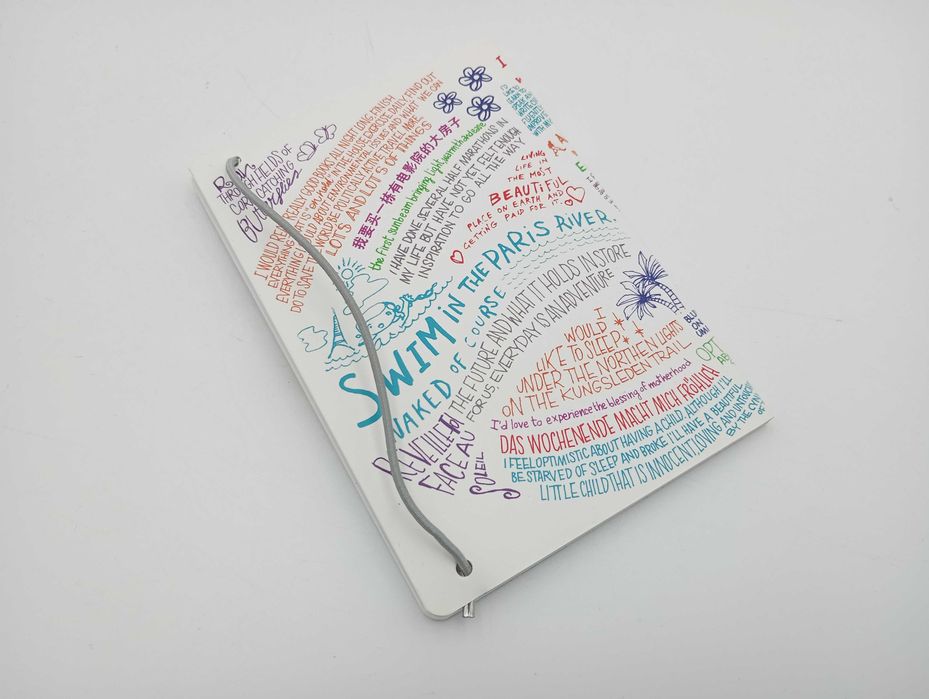 RUN
THROUGH FIELDS OF
CORN CATCHING
BUTTERFLIES
I WOULD
GOOD BOOKS ALL NIGHT LONG, FINISH
EVERYTHING THAT IS "on hold" IN THE HOUSE, EXERCISE DAILY, FIND OUT
EVERYTHING I COULD ABOUT ENVIRONMENTAL ISSUES AND WHAT WE CAN
DO TO SAVE THE WORLD, BE POLITICALLY ACTIVE, TRAVEL MORE
LOTS AND LOTS OF THINGS
我要买一栋有电影院的大房子
the first sunbeam bringing light, warmth and
I HAVE DONE SEVERAL HALF MARATHONS IN
MY LIFE BUT HAVE NOT YET FELT ENOUGH
INSPIRATION TO GO ALL THE WAY
LIVING
LIFE IN
THE MOST
BEAUTIFUL
PLACE ON EARTH AND
GETTING PAID FOR IT.
SWIM IN THE PARIS RIVER
NAKED OF COURSE
THE FUTURE AND WHAT IT HOLDS IN STORE
FOR US, EVERYDAY IS AN ADVENTURE
I
WOULD
LIKE TO SLEEP
UNDER THE NORTHEN LIGHTS
ON THE KUNGSLEDEN TRAIL
I'd love to experience the blessing of motherhood
DAS WOCHENENDE MACHT MICH FRÖHLICH
I FEEL OPTIMISTIC ABOUT HAVING A CHILD, ALTHOUGH I'LL
BE STARVED OF SLEEP AND BROKE I'LL HAVE A BEAUTIFUL
LITTLE CHILD THAT IS INNOCENT, LOVING AND
BY THE
RÉVEILLER
FACE AU
SOLEIL
OPT